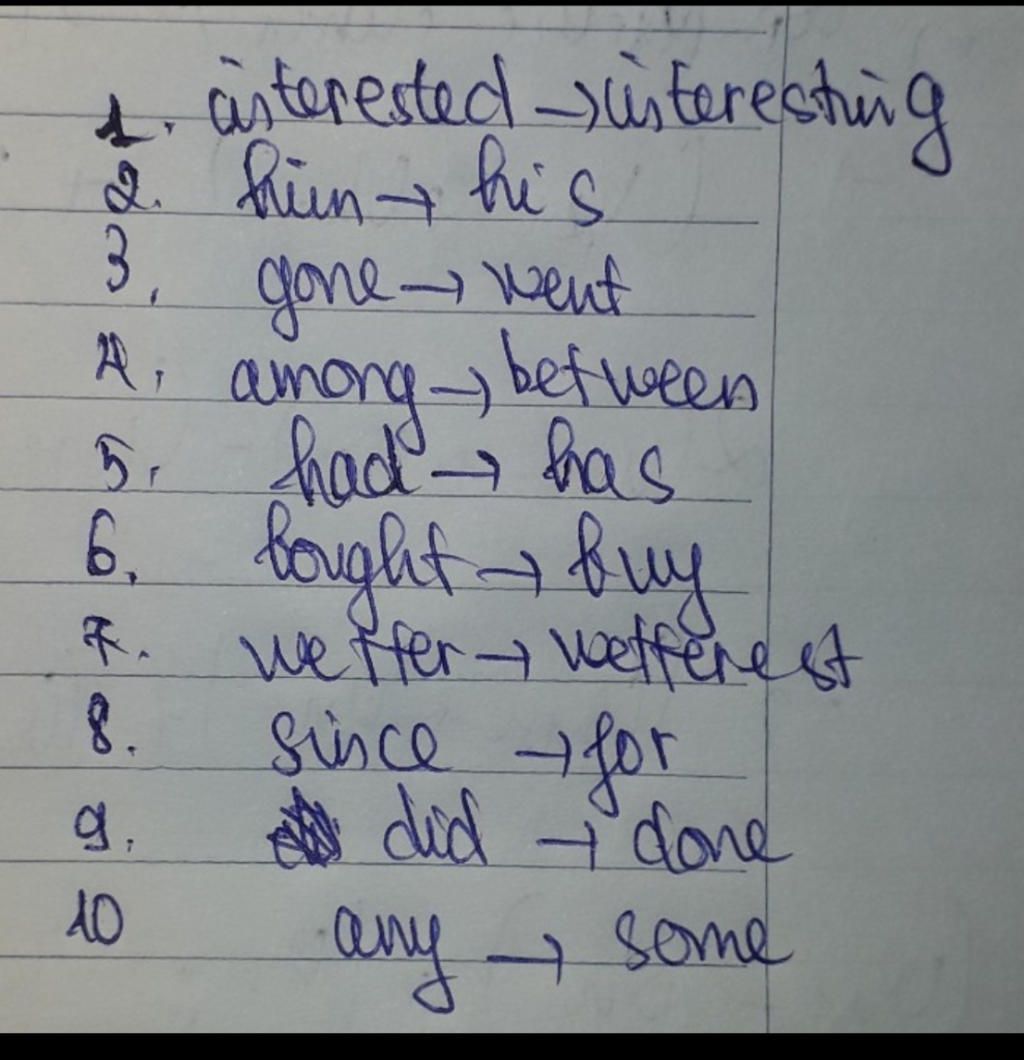 1. interested → interesting
2. him → his
3. gone → went
4. among → between
5. had → has
6. bought → buy
7. wetter → wetterest
8. since → for
9. did → done
10 any → some